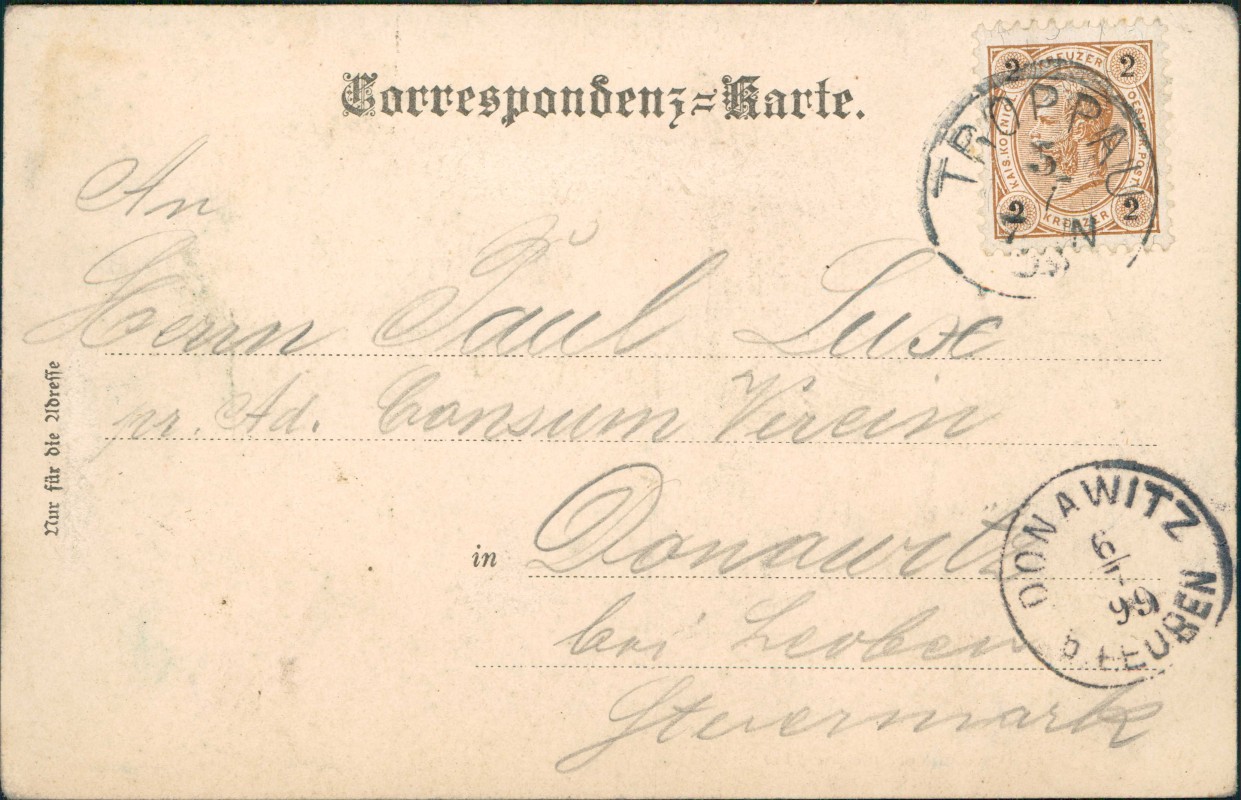 Correspondenz=Karte.
2 KREUZER 2
KAIS. KOENIGL. OESTERR. POST
2 KREUZER 2
TROPPAU
5/7
7 N
An
Herrn Paul Lux
pr. Ad. Consum Verein
in Donawitz
bei Leoben
Steiermark
Nur für die Adresse
DONAWITZ
99
b. LEOBEN